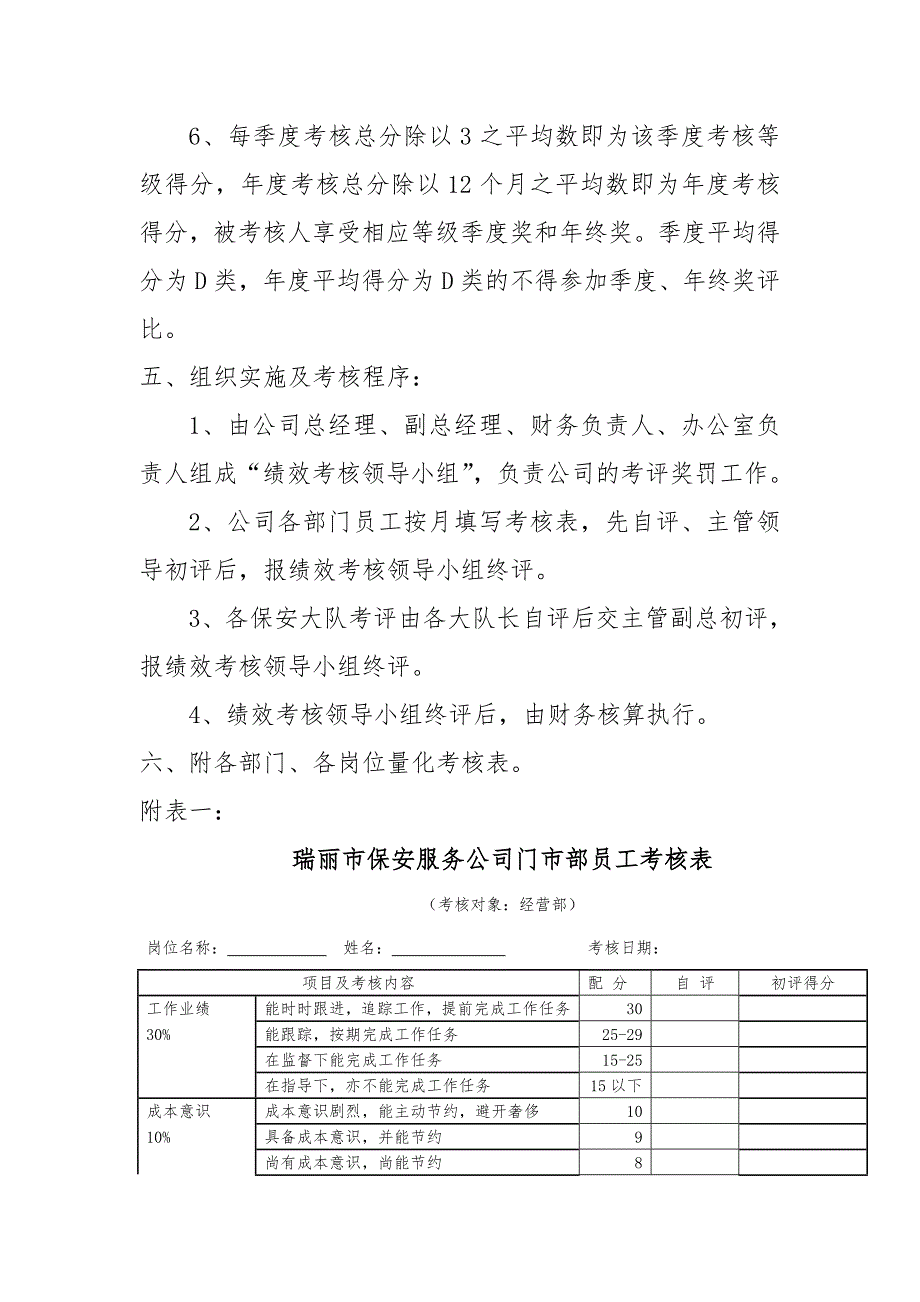 6、每季度考核总分除以 3 之平均数即为该季度考核等
级得分，年度考核总分除以 12 个月之平均数即为年度考核
得分，被考核人享受相应等级季度奖和年终奖。季度平均得
分为 D 类，年度平均得分为 D 类的不得参加季度、年终奖评
比。
五、组织实施及考核程序：
1、由公司总经理、副总经理、财务负责人、办公室负
责人组成“绩效考核领导小组”，负责公司的考评奖罚工作。
2、公司各部门员工按月填写考核表，先自评、主管领
导初评后，报绩效考核领导小组终评。
3、各保安大队考评由各大队长自评后交主管副总初评，
报绩效考核领导小组终评。
4、绩效考核领导小组终评后，由财务核算执行。
六、附各部门、各岗位量化考核表。
附表一：
瑞丽市保安服务公司门市部员工考核表
（考核对象：经营部）
岗位名称： 姓名： 考核日期：
项目及考核内容 配 分 自 评 初评得分
工作业绩 能时时跟进，追踪工作，提前完成工作任务 30
30% 能跟踪，按期完成工作任务 25-29
在监督下能完成工作任务 15-25
在指导下，亦不能完成工作任务 15 以下
成本意识 成本意识剧烈，能主动节约，避开奢侈 10
10% 具备成本意识，并能节约 9
尚有成本意识，尚能节约 8